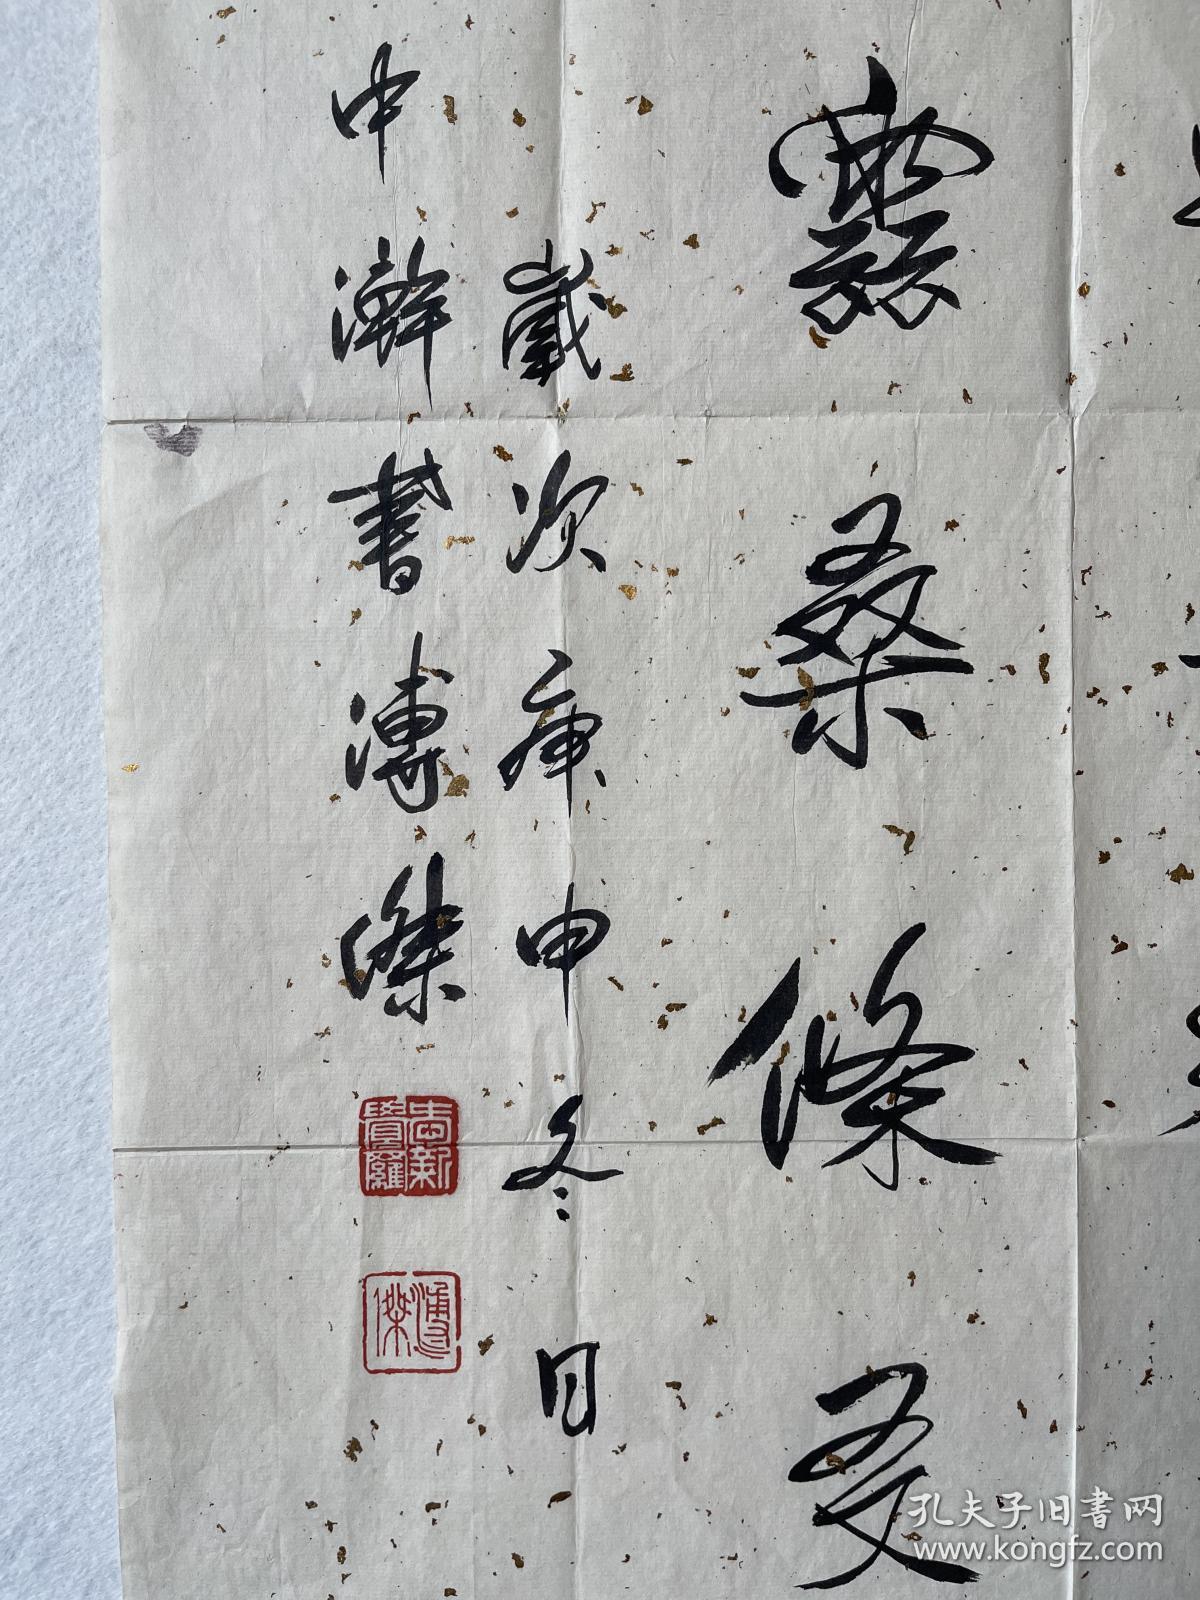 桑條
歲次庚申冬日
中澣書溥傑
愛新覺羅
溥傑
孔夫子旧書网
www.kongfz.com